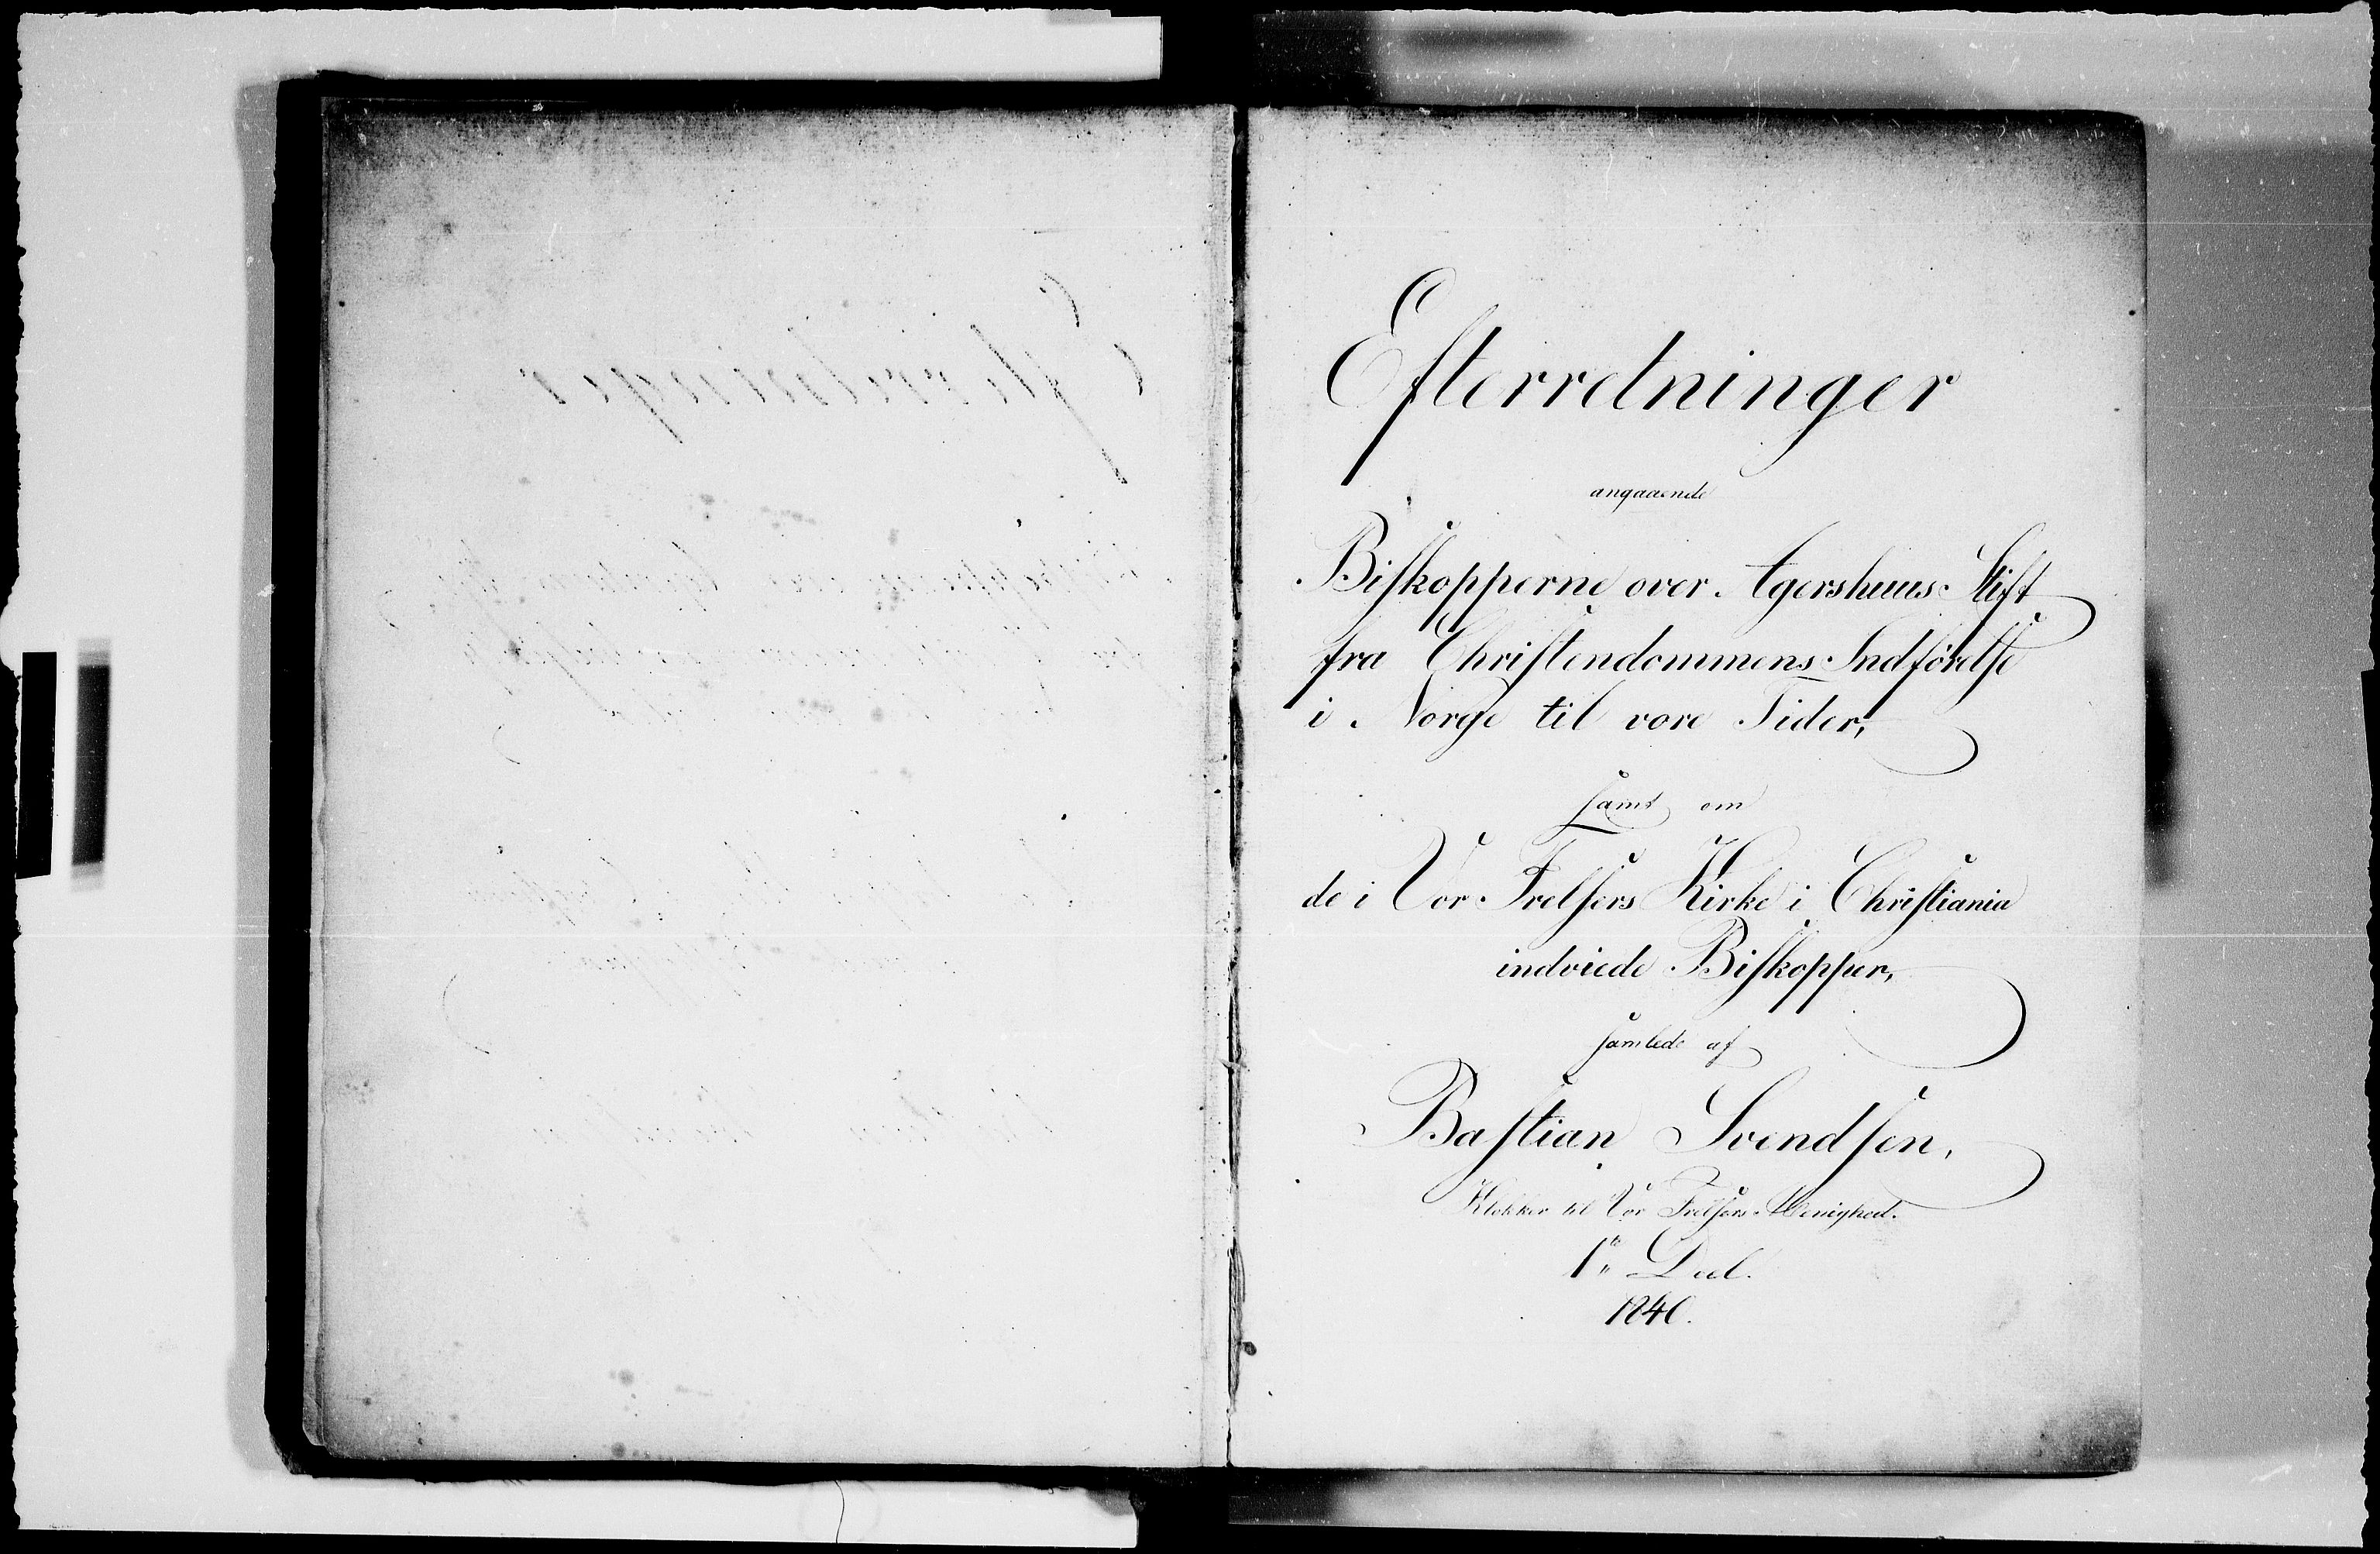 Efterretninger
angaaende
Biſkopperne over Agershuus Stift
fra Chriſtendommens Indförelſe
i Norge til vore Tider,
ſamt om
de i Vor Frelſers Kirke i Chriſtiania
indviede Biſkopper,
ſamlede af
Baſtian Svendſen,
Klokker til Vor Frelſers Menighed.
1ste Deel.
1840.